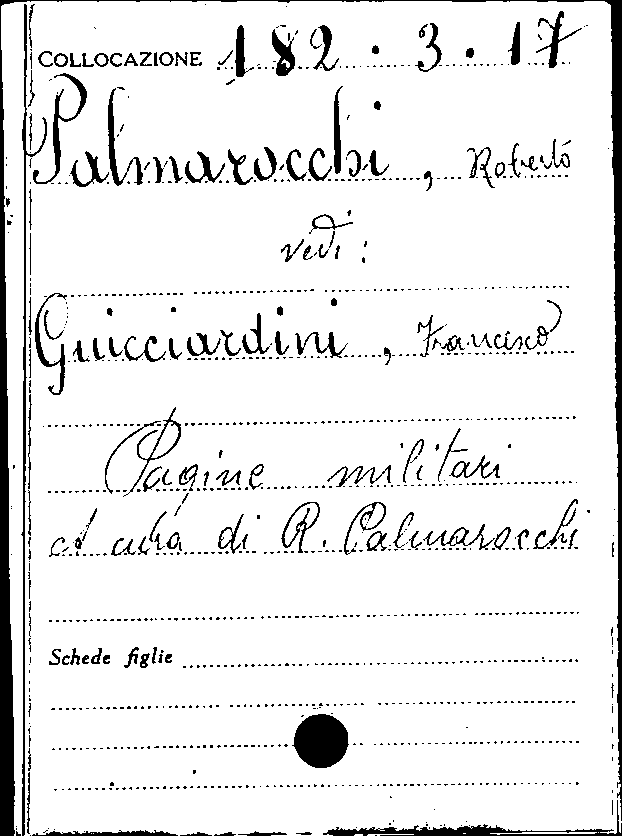 COLLOCAZIONE 182 . 3 . 17
Palmarocchi, Roberto
vedi:
Guicciardini, Francesco
Pagine militari
A cura di R. Palmarocchi
Schede figlie